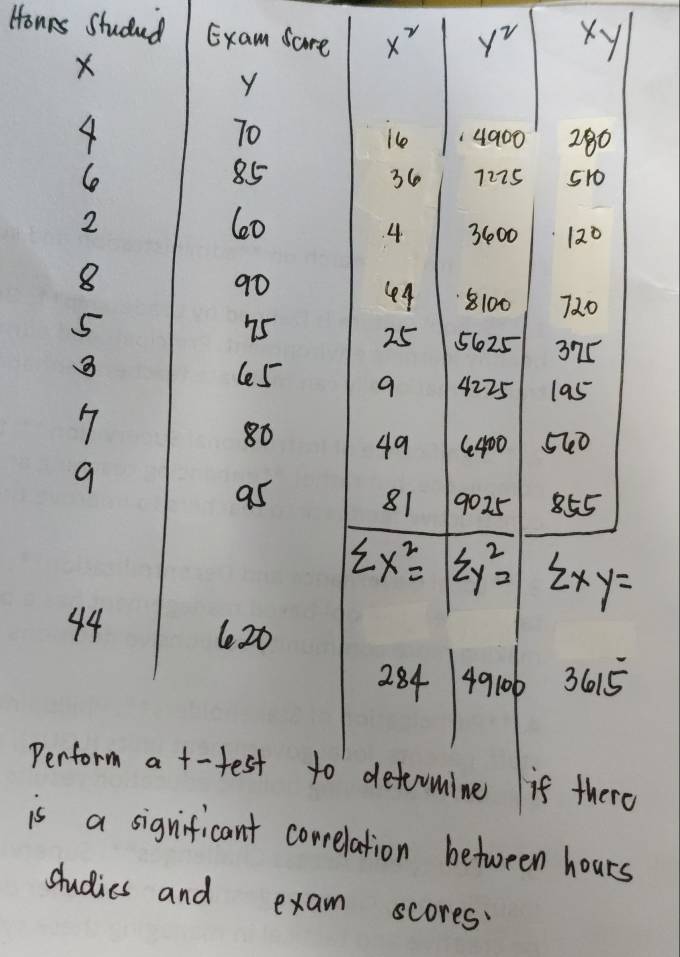 Hours Studied Exam Score x² y² xy
x y
4 70 16 4900 280
6 85 36 7225 510
2 60 4 3600 120
8 90 64 8100 720
5 75 25 5625 375
3 65 9 4225 195
7 80 49 6400 560
9 95 81 9025 855
Σx²= Σy²= Σxy=
44 620
284 49100 3615
Perform a t-test to determine if there
is a significant correlation between hours
studies and exam scores.